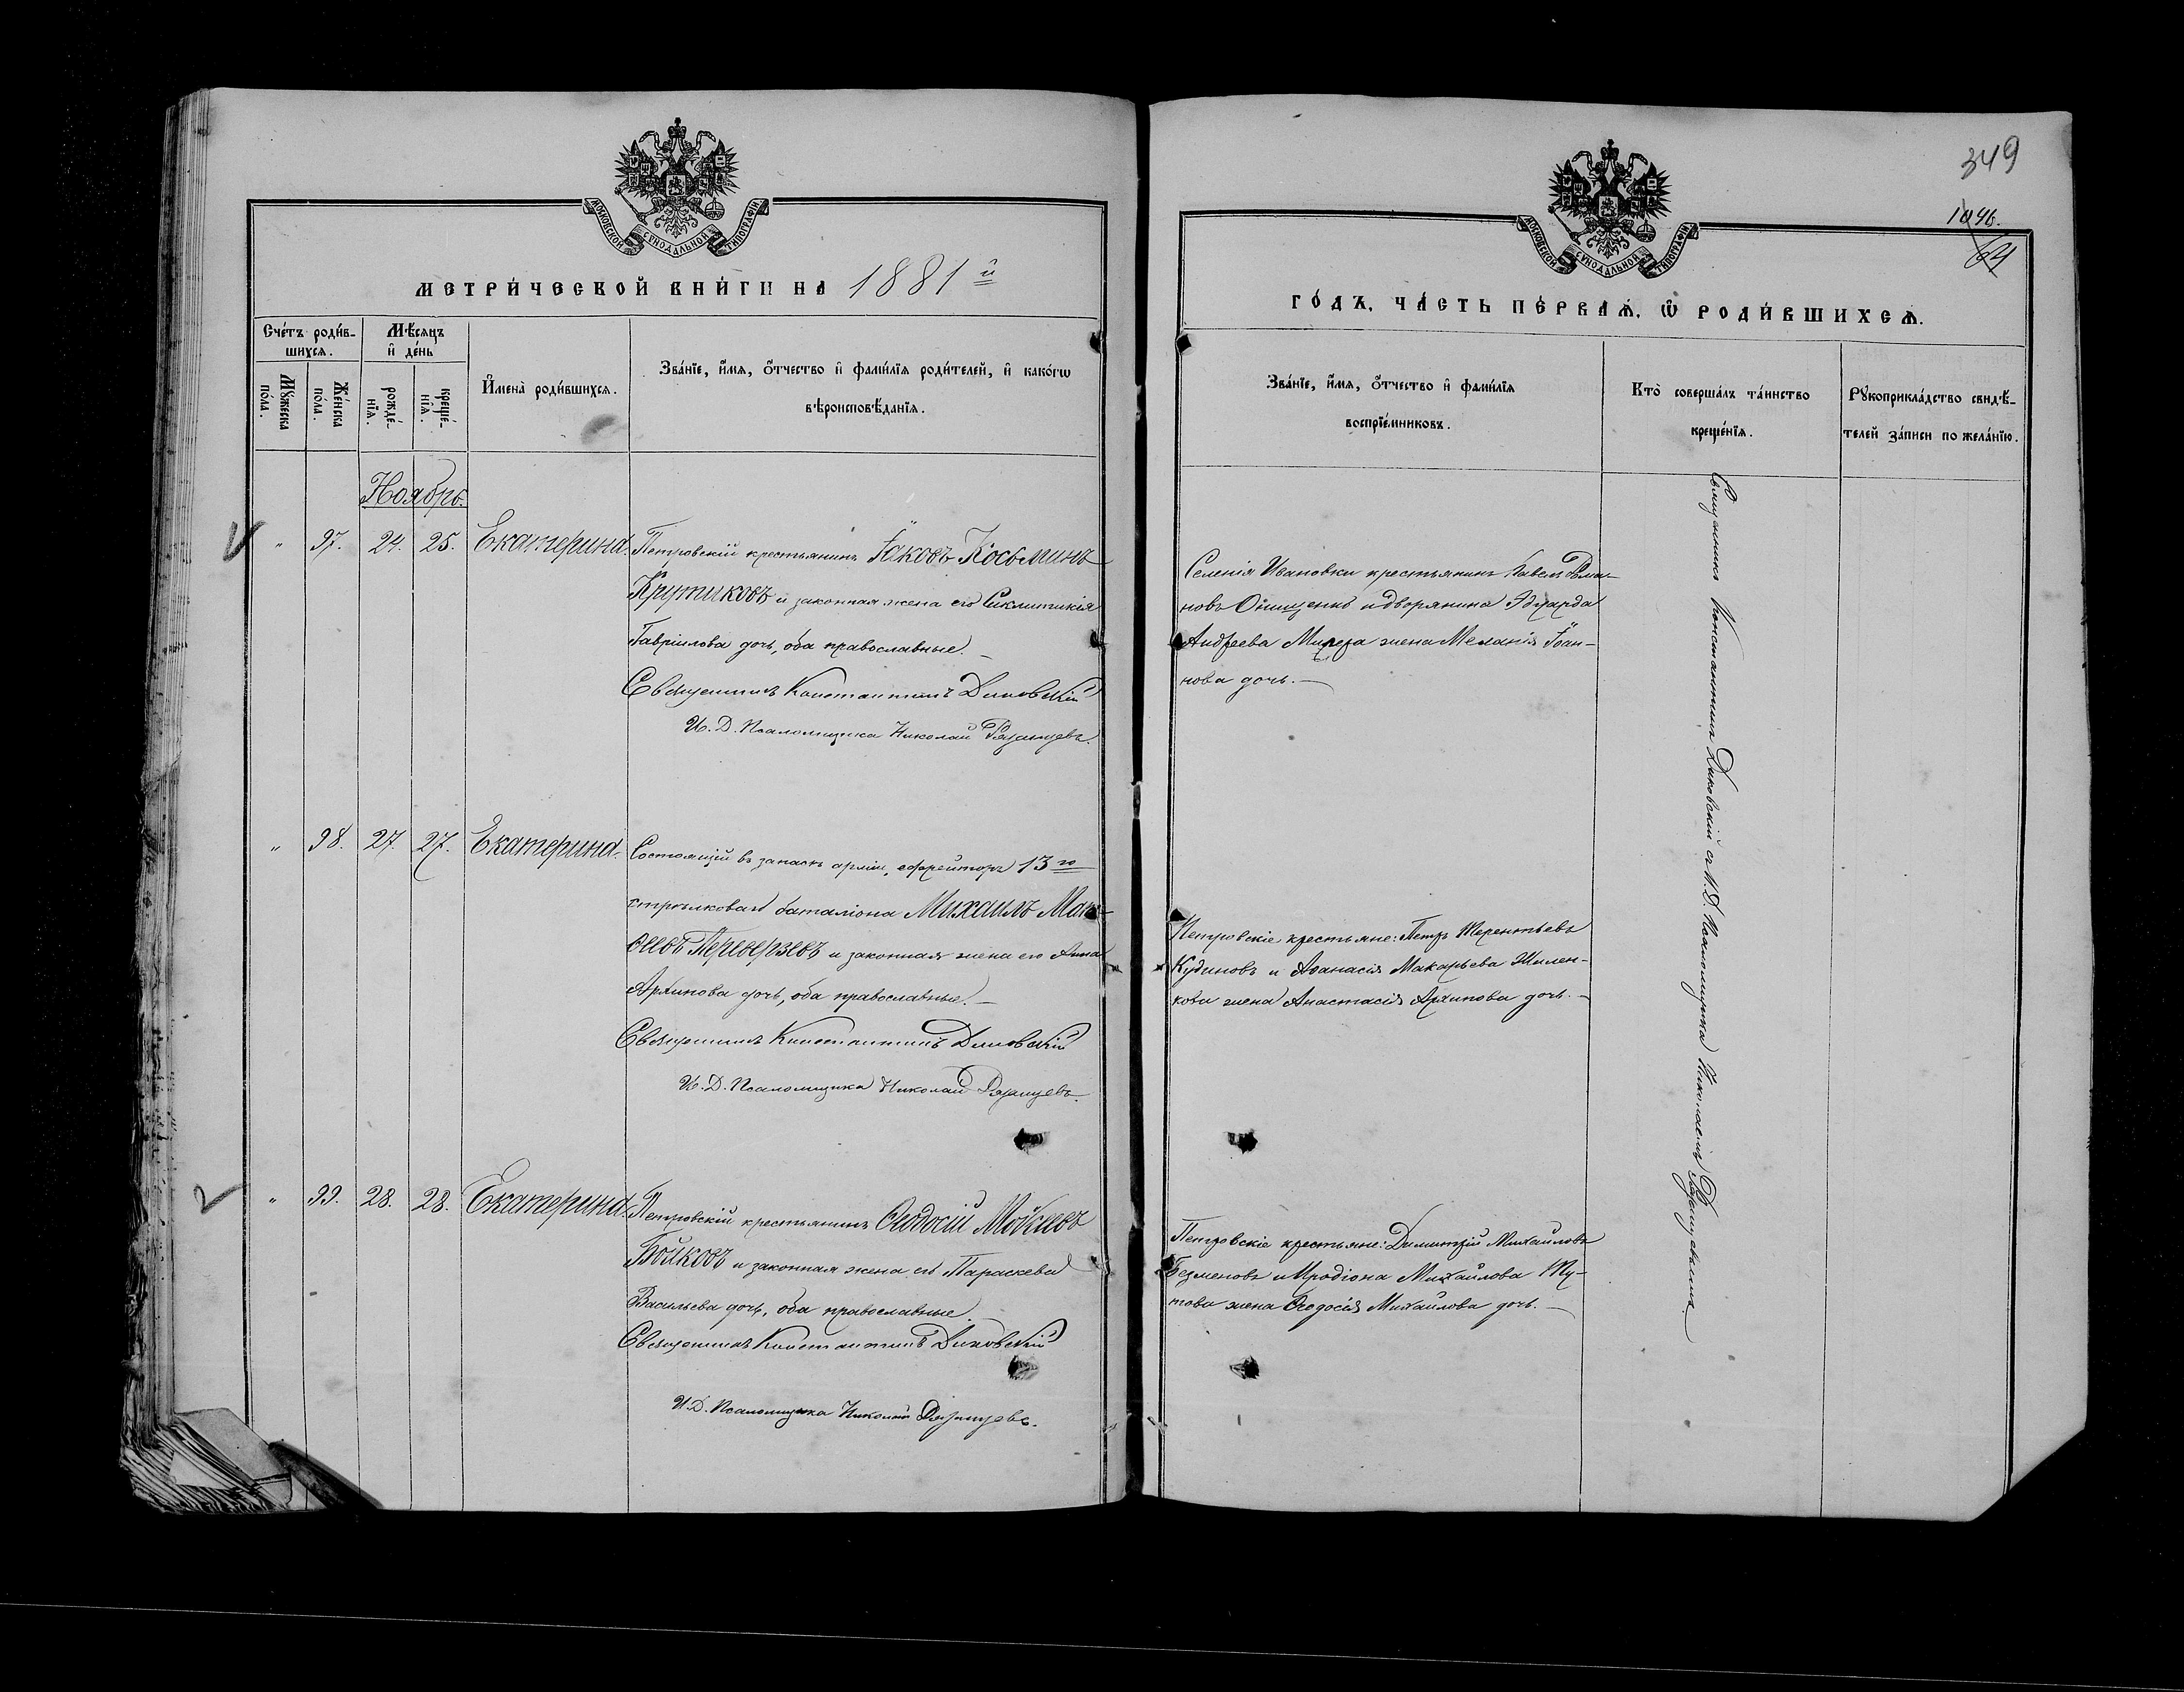 МОСКОВСКОЙ СѴНОДАЛЬНОЙ ТИПОГРАФІИ
МЕТРИ́ЧЕСКОЙ КНИ́ГИ НА 1881й
Сче́тъ роди́в-
шихся.
Мѣ́сяцъ
и҆ де́нь
Мꙋ́жеска
по́ла.
Же́нска
по́ла.
рожде́-
нїѧ.
креще́-
нїѧ.
И҆мена̀ роди́вшихся.
Зва́нїе, и҆́мѧ, ѻ҆́тчество и҆ фами́лїѧ роди́телей, и҆ како́гѡ
вѣроисповѣ́данїѧ.
Ноябрь.
" 97. 24. 25. Екатерина. Петровскій крестьянинъ Іаковъ Косьминъ
Крутиковъ и законная жена его Сиклитикія
Гавріилова дочь, оба православные. —
Священникъ Константинъ Диковскій
И. Д. Псаломщика Николай Рязанцевъ.
" 98. 27. 27. Екатерина. Состоящій въ запасѣ арміи, ефрейторъ 13го
стрѣлковаго баталіона Михаилъ
и законная жена его Анна
Архипова дочь, оба православные. —
Священникъ Константинъ Диковскій
И. Д. Псаломщика Николай Рязанцевъ.
" 99. 28. 28. Екатерина. Петровскій крестьянинъ Ѳеодосій Мокіевъ
Бойковъ и законная жена его Параскева
Васильева дочь, оба православные.
Священникъ Константинъ Диковскій
И. Д. Псаломщика Николай Рязанцевъ.
349
1046.
64
МОСКОВСКОЙ СѴНОДАЛЬНОЙ ТИПОГРАФІИ
ГО́ДЪ, ЧА́СТЬ ПЕ́РВАѦ, Ѡ҆ РОДИ́ВШИХСѦ.
Зва́нїе, и҆́мѧ, ѻ҆́тчество и҆ фами́лїѧ
воспрїе́мниковъ.
Кто̀ соверша́лъ та́инство
креще́нїѧ.
Рꙋкоприкла́дство свидѣ́-
телей за́писи по жела́нїю.
Селенія Ивановки крестьянинъ Павелъ Рома-
новъ Онищенко и дворянина Эдуарда
Андреева жена Меланія Іоан-
нова дочь. —
Петровскіе крестьяне: Петръ Терентьевъ
Кудиновъ и Аѳанасія Макарьева Шилен-
кова жена Анастасія Архипова дочь. —
Петровскіе крестьяне: Димитрій Михайловъ
Безменовъ и Иродіона Михайлова Ту-
това жена Ѳеодосія Михайлова дочь. —
Священникъ Константинъ Диковскій съ И. Д. Псаломщика Николаемъ Рязанцевымъ.